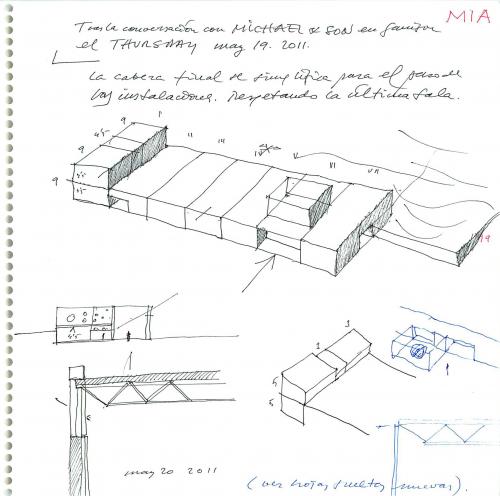 MIA
Tras la conversación con MICHAEL & SON en
el THURSDAY may 19. 2011.
La cabeza final se simplifica para el paso de
las instalaciones. respetando la última sala.
9
4'5
I
II
III
IV
V
VI
VII
9
4'5
9
4'5
19
4'5
1
3
5
5
may 20 2011
(ver hojas sueltas nuevas).